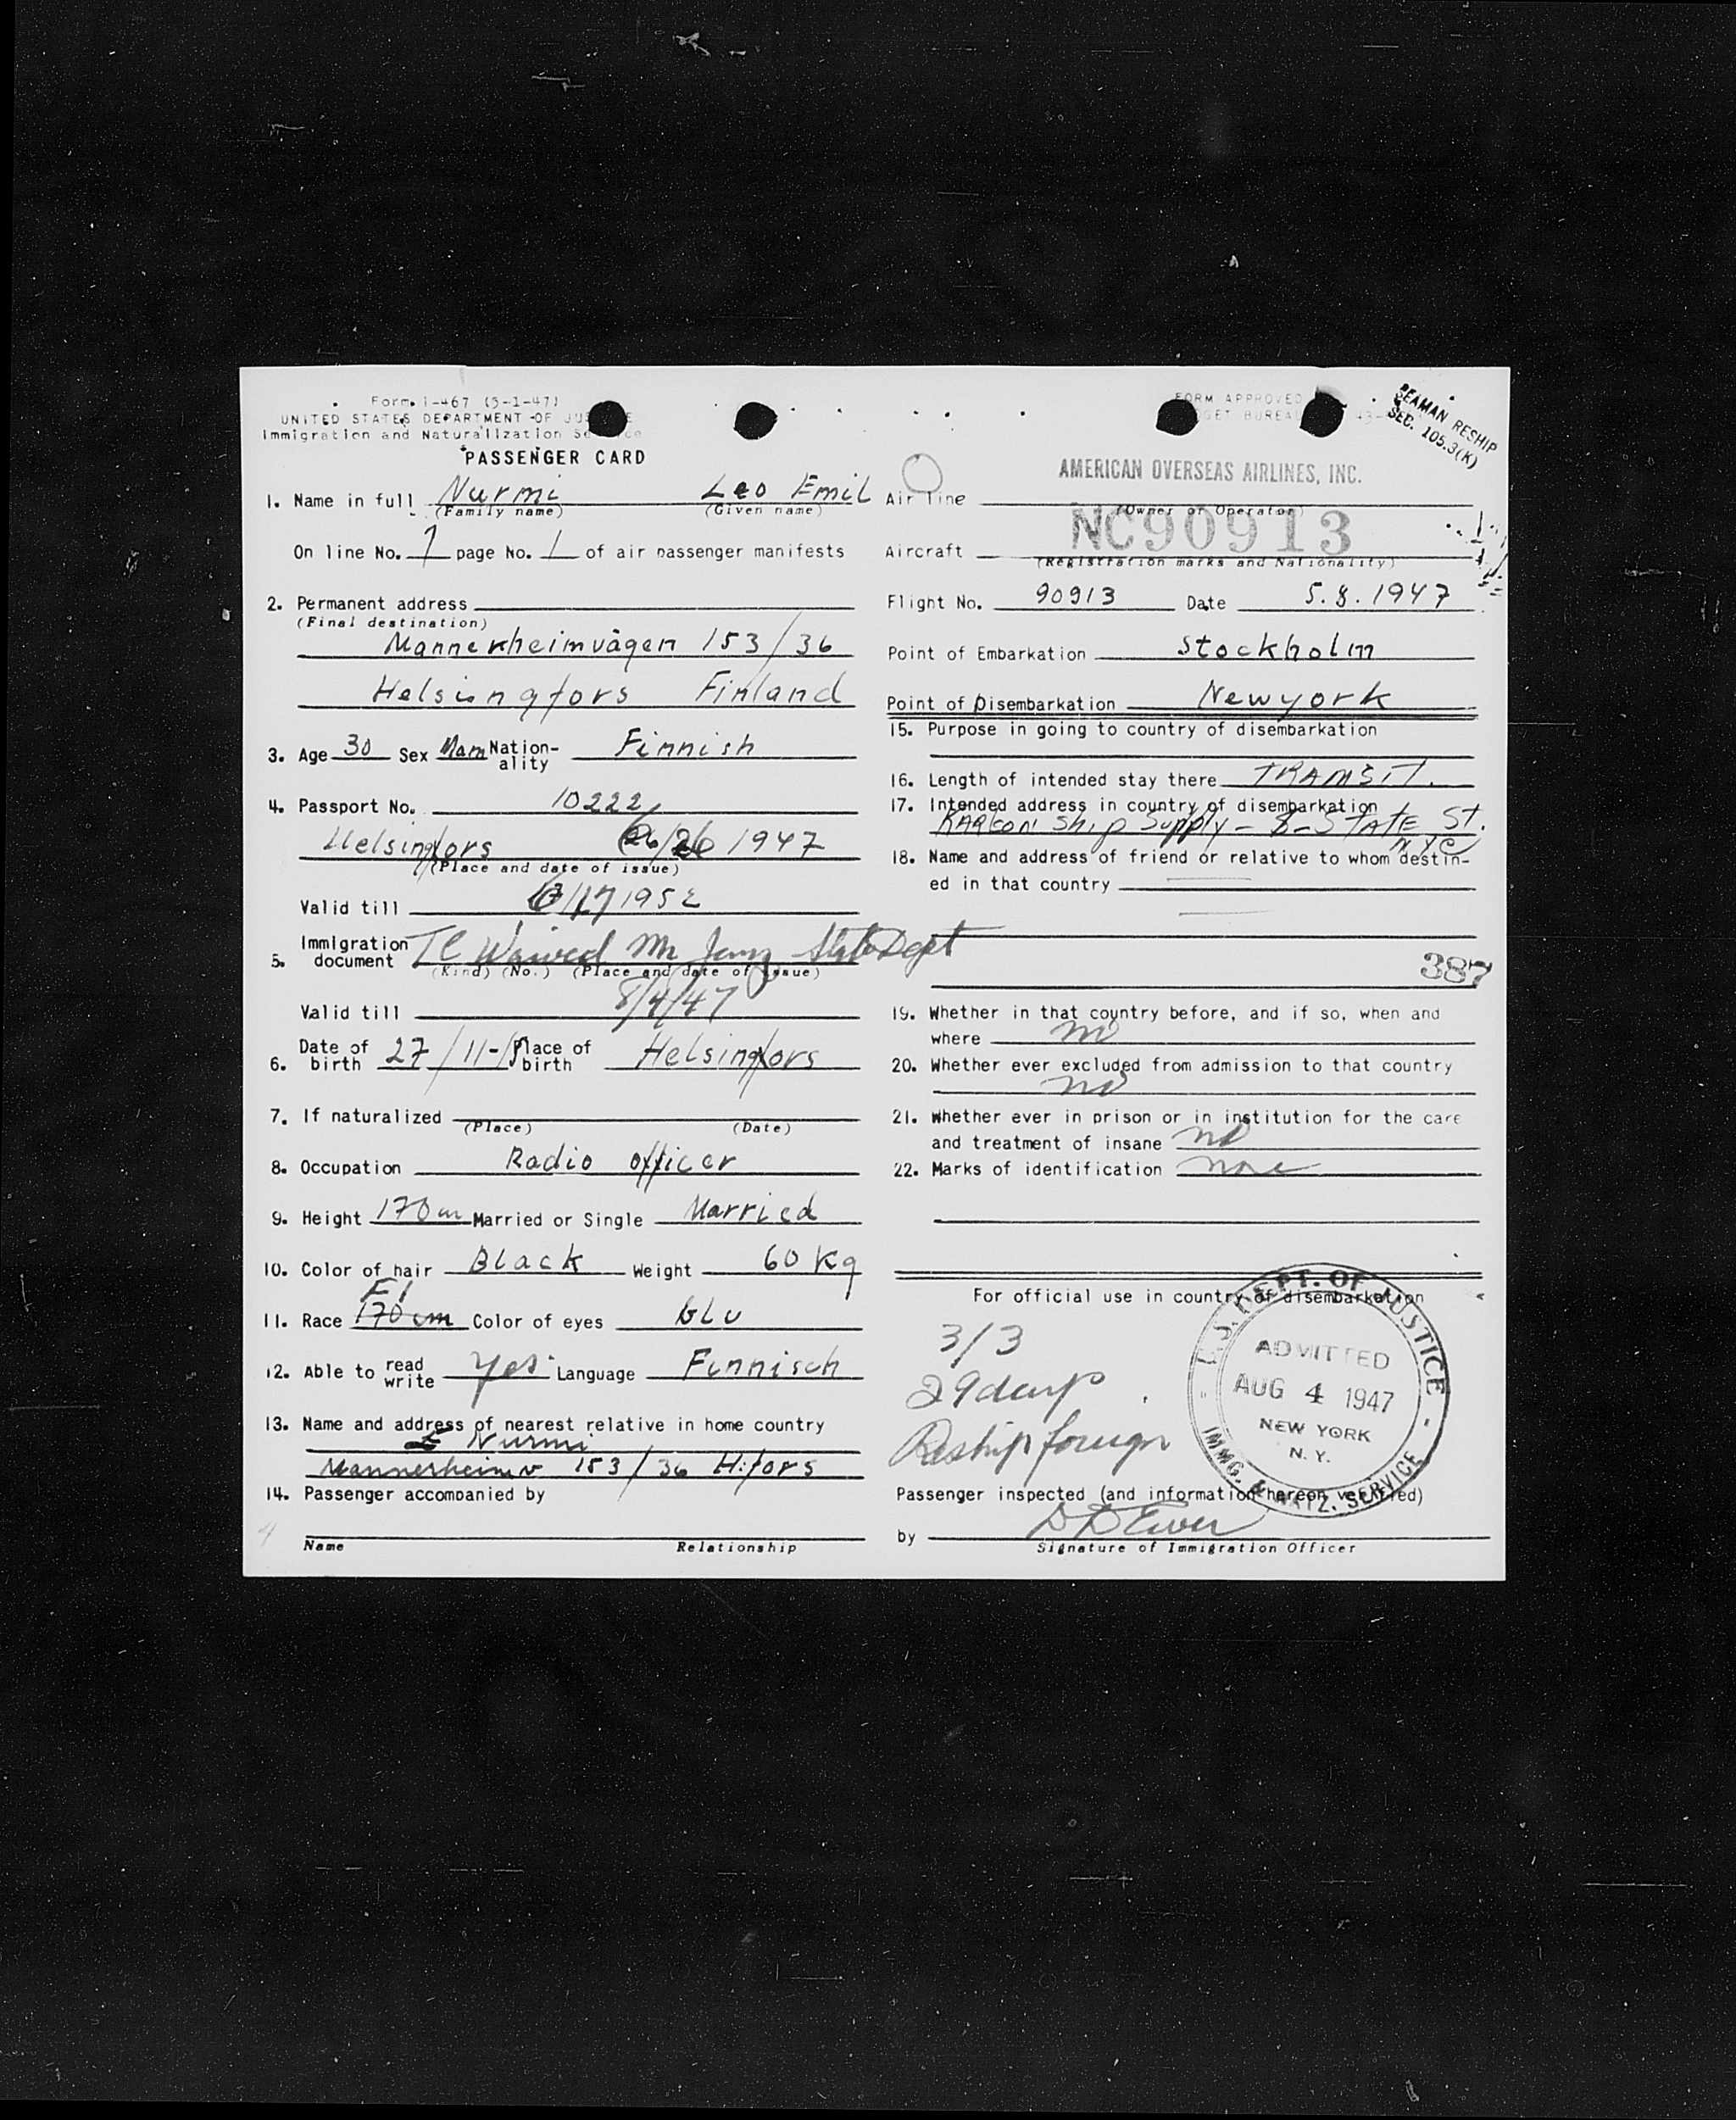 Form I-467 (5-1-47)
UNITED STATES DEPARTMENT OF JUSTICE
Immigration and Naturalization Service
PASSENGER CARD
1. Name in full Nurmi Leo Emil
(Family name) (Given name)
On line No. 1 page No. 1 of air passenger manifests
2. Permanent address
(Final destination)
Mannerheimvägen 153/36
Helsingfors Finland
3. Age 30 Sex Man Nationality Finnish
4. Passport No. 10222
Helsingfors 1947
(Place and date of issue)
Valid till 1952
5. Immigration document TC Waived Mr State Dept
(Kind) (No.) (Place and date of issue)
Valid till 8/4/47
6. Date of birth 27/11- Place of birth Helsingfors
7. If naturalized
(Place) (Date)
8. Occupation Radio officer
9. Height 170 cm Married or Single Married
10. Color of hair Black Weight 60 Kg
11. Race 170 cm Fi Color of eyes BLU
12. Able to read write Yes Language Finnisch
13. Name and address of nearest relative in home country
Nurmi
Mannerheimv 153/36 H:fors
14. Passenger accompanied by
Name Relationship
FORM APPROVED
BUDGET BUREAU 43-
SEAMAN RESHIP
SEC. 105.3(K)
AMERICAN OVERSEAS AIRLINES, INC.
Air line
(Owner or Operator)
Aircraft NC90913
(Registration marks and Nationality)
Flight No. 90913 Date 5.8.1947
Point of Embarkation Stockholm
Point of Disembarkation Newyork
15. Purpose in going to country of disembarkation
16. Length of intended stay there TRANSIT.
17. Intended address in country of disembarkation
Ship Supply - 8 - STATE St.
NYC
18. Name and address of friend or relative to whom destin-
ed in that country
387
19. Whether in that country before, and if so, when and
where no
20. Whether ever excluded from admission to that country
no
21. Whether ever in prison or in institution for the care
and treatment of insane no
22. Marks of identification none
For official use in country of disembarkation
3/3
29 days
Reship foreign
U.S. DEPT. OF JUSTICE
ADMITTED
AUG 4 1947
NEW YORK
N. Y.
IMMG. & NATZ. SERVICE
Passenger inspected (and information hereon verified)
by
Signature of Immigration Officer